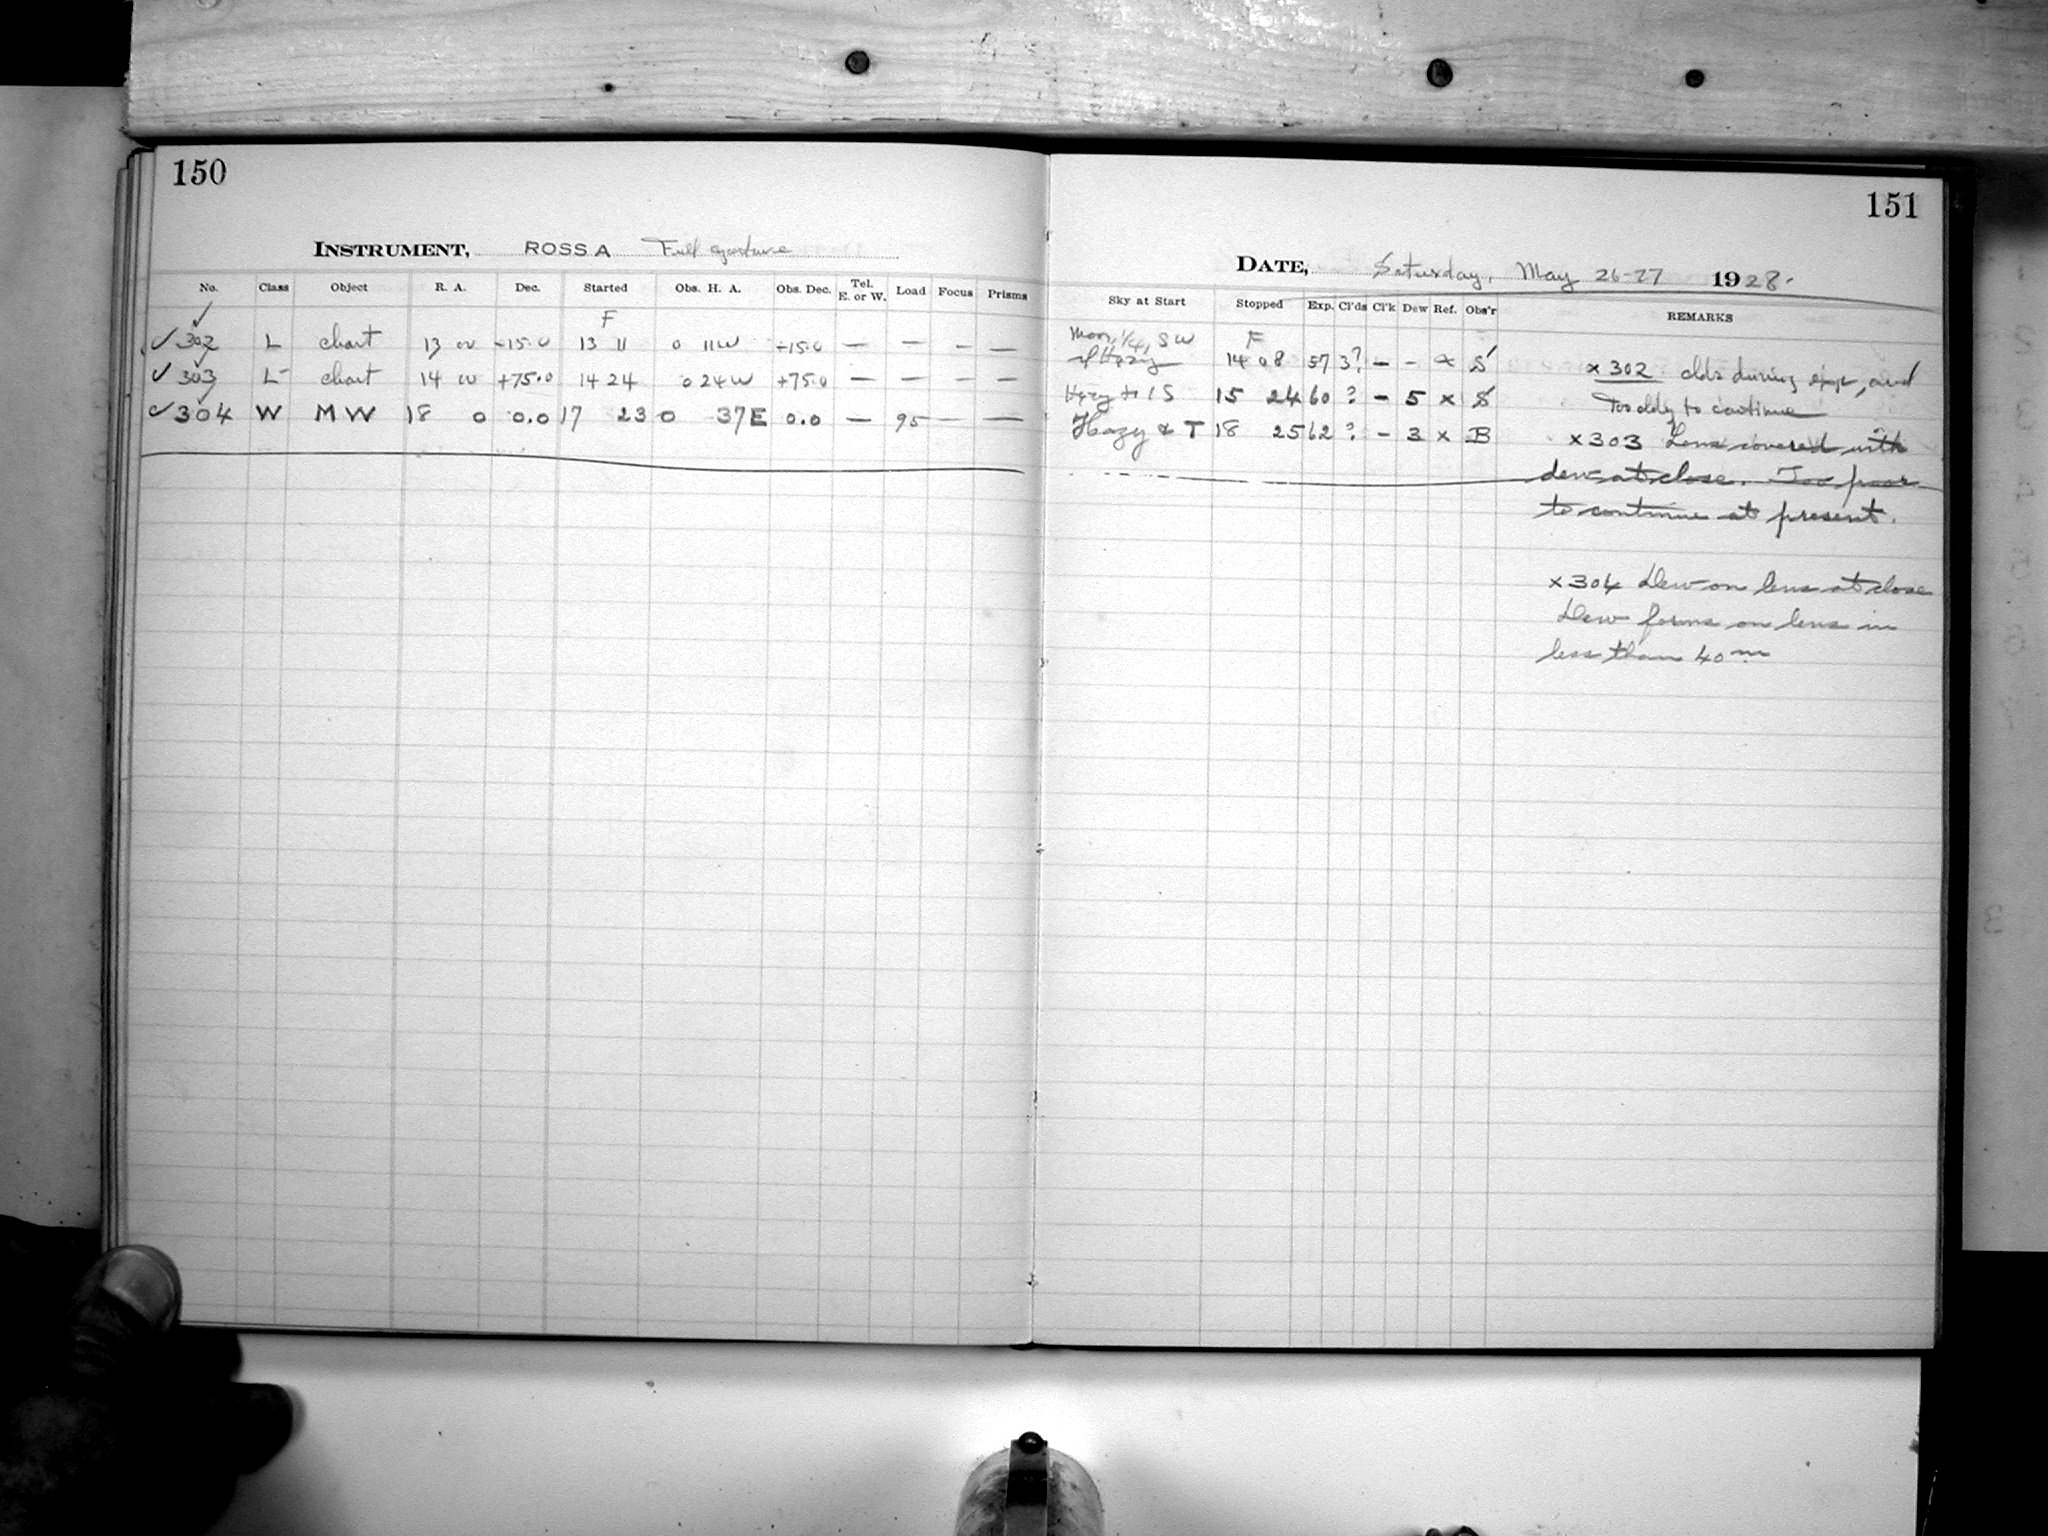 150
INSTRUMENT, ROSS A Full aperture
No. Class Object R. A. Dec. Started Obs. H. A. Obs. Dec. Tel. E. or W. Load Focus Prisms
F
✓ 302 L chart 13 00 -15.0 13 11 0 11W -15.0 — — — —
✓ 303 L chart 14 00 +75.0 14 24 0 24W +75.0 — — — —
✓ 304 W MW 18 0 0.0 17 23 0 37E 0.0 — 95 — —
151
DATE, Saturday, May 26-27 1928.
Sky at Start Stopped Exp. Cl'ds Cl'k Dew Ref. Obs'r REMARKS
Moon, 1/4, SW F
Hazy 14 08 57 3? — - x S
Hazy to 1S 15 24 60 ? - 5 x S
Hazy & T 18 25 62 ? - 3 x B
x 302 clds during expr, and
Too cldy to continue
x 303 Lens covered with
dew at close. Too poor
to continue at present.
x 304 Dew on lens at close
Dew forms on lens in
less than 40 m